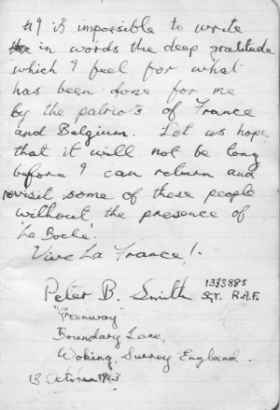 It is impossible to write
in words the deep gratitude
which I feel for what
has been done for me
by the patriots of France
and Belgium. Let us hope
that it will not be long
before I can return and
revisit some of these people
without the presence of
'Le Boche'.
Vive La France!.
Peter B. Smith 1333885
SGT. R.A.F.
Boundary Lane,
Woking, Surrey England.
13 October 1943